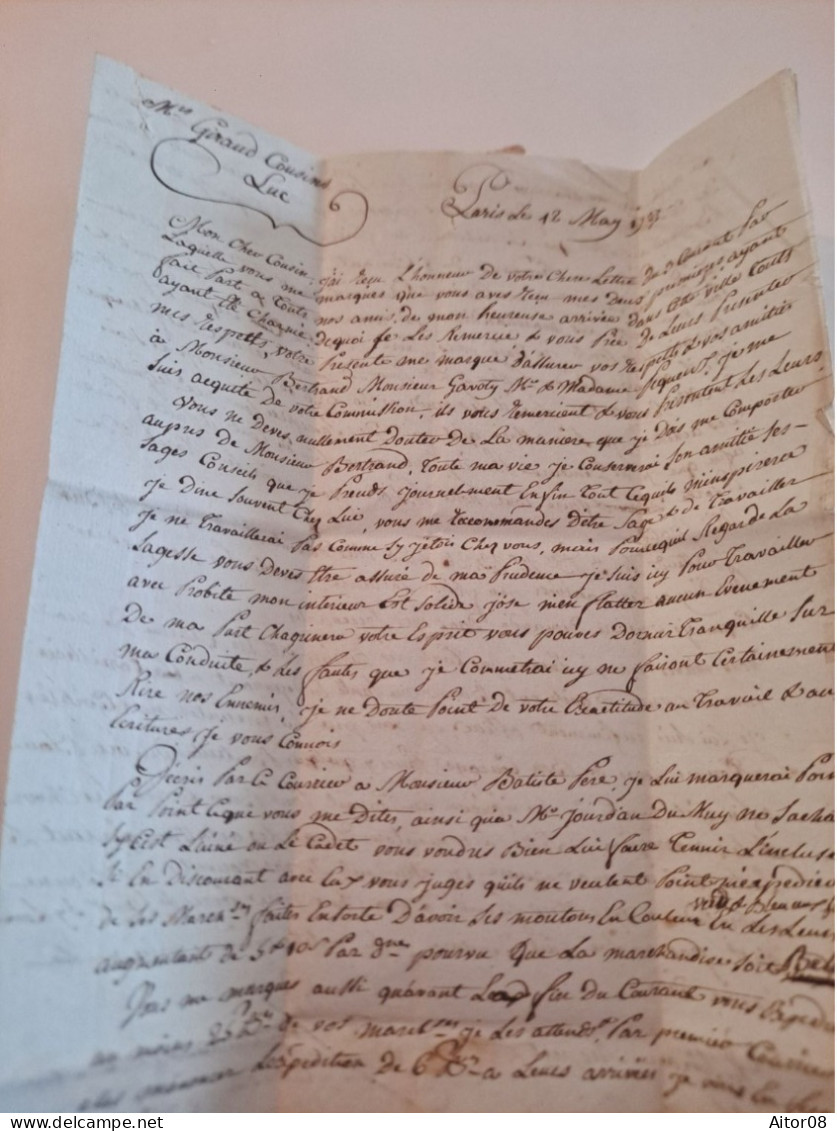 Mrs Giraud Cousins
Luc
Paris Le 12 May
Mon Cher Cousin j'ai Reçu L'honneur De Votre Chere Lettre du courant Par
Laquelle vous me marques que vous aves Reçu mes Deux premieres ayant
fait Part a Touts nos amis, de mon heureuse arrivée dans Cete ville Touts
ayant Eté Charmé, Dequoi je Les Remercie & vous Prie De Leurs Presenter
mes Respetts, Votre Presente me marque D'assurer vos Respetts & vos amitiés
à Monsieur Bertrand Monsieur Gavoty Mr & Madame je me
suis acquité De Votre Commission, ils vous Remercient & vous Presentent Les Leurs
Vous ne Deves nullement Douter De La maniere que je Dois me Comporter
aupres De Monsieur Bertrand, Toute ma vie je Conserverai Son amitié Ses
sages Conseils que je Prends journelment Enfin Tout Cequils m'inspirera
je Dine Souvent Chez Lui, vous me Recommandes D'etre Sage & De Travailler
je ne Travaillerai Pas Comme Sy j'etois Chez vous, mais Pourcequil Regarde La
Sagesse vous Deves Etre assuré de ma Prudence je suis icy Pour Travailler
avec Probité mon interieur Est Solide j'ose m'en flatter aucun Evenement
De ma Part Chagrinera votre Esprit vous pouves Dormir Tranquille Sur
ma Conduite, & Les fautes que je Commetrai icy ne fairont Certainement
Rire nos Ennemis, je ne Doute Point de votre Exactitude au Travail & au
Ecritures je vous Connois
J'ecris Par Ce Courrier a Monsieur Batiste Pere, je Lui marquerai Poin
Par Point Ceque vous me Dites, ainsi qu'a Mr Jourdan Du Muy ne Sacha
Sy C'est L'ainé ou Le Cadet vous voudres Bien Lui faire Tennir L'incluse
Si En Discourant avec Eux vous juges qu'ils ne veulent Point m'expedier
de Ses March.ses faites Ensorte D'avoir Ses moutons En Couleur
augmentant de Par pourvu Que La marchandise soit
Vous me marques aussi qu'avant La fin Du Courant vous Expedi
au moins 25 de vos march.ses je Les attends, Par premier Courrier
L'expedition de 6 a Leurs arrivées je vous